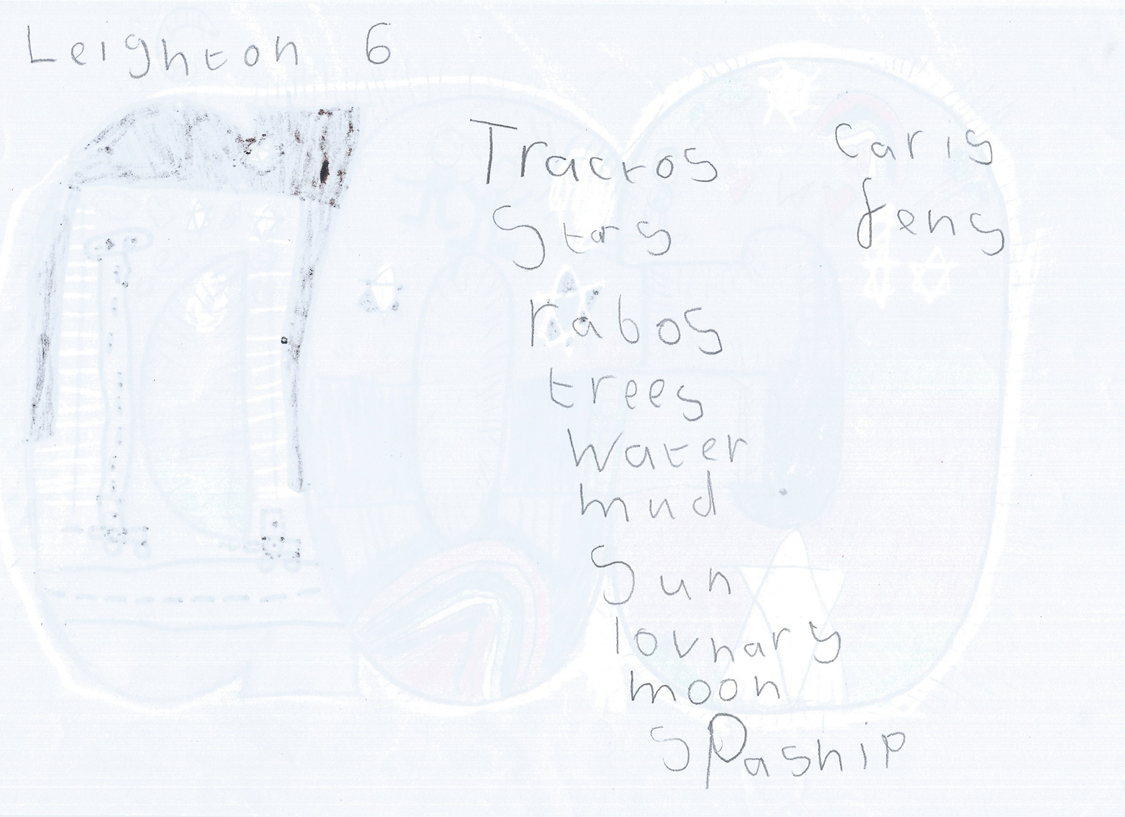 Leighton 6
Tractros
Stars
rabos
trees
water
mud
Sun
lovnary
moon
SPaship
Caris
fens